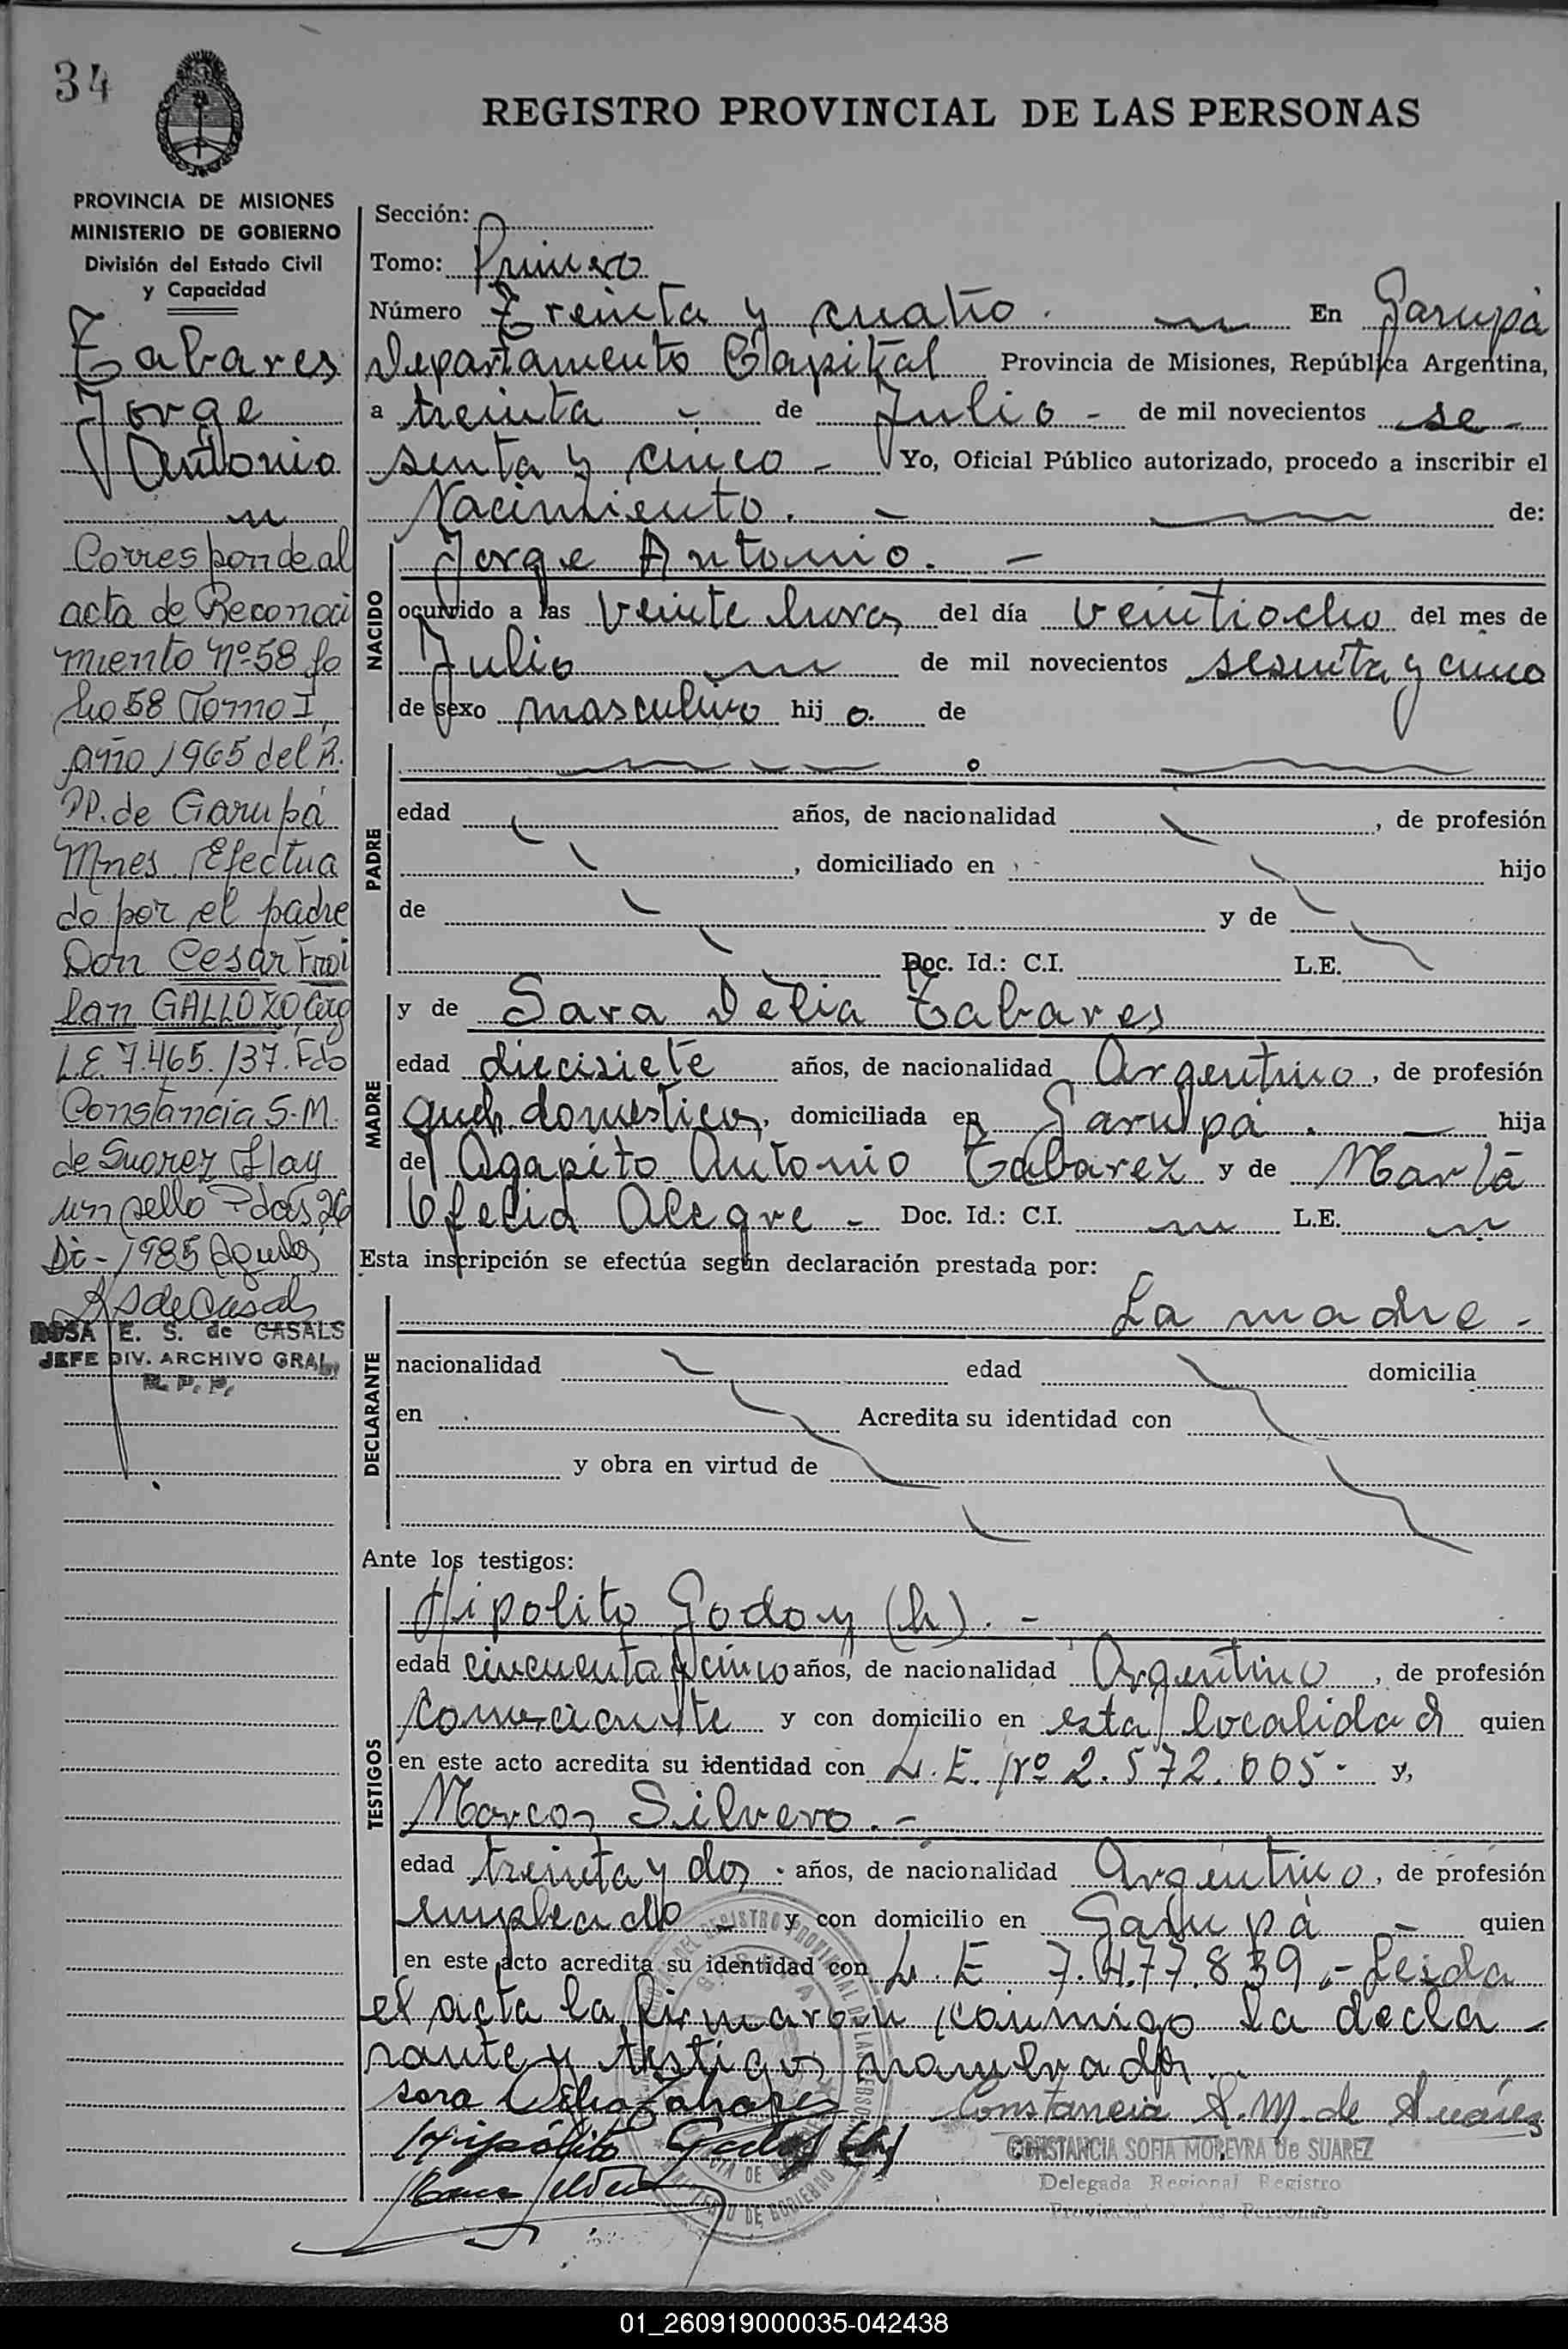 34
REGISTRO PROVINCIAL DE LAS PERSONAS
PROVINCIA DE MISIONES
MINISTERIO DE GOBIERNO
División del Estado Civil
y Capacidad
Tabares
Jorge
Antonio
Corresponde al
acta de Reconoci
miento Nº 58 fo
lio 58 Tomo I
año 1965 del R.
PP. de Garupá
Mnes. Efectua
do por el padre
Don Cesar Froi
lan GALLOZO Arg
L.E. 7.465.137. Fdo
Constancia S. M.
de Suarez Hay
un sello Pdas 26
Dic - 1985
ROSA E. S. de CASALS
JEFE DIV. ARCHIVO GRAL.
R. P. P.
Sección:
Tomo: Primero
Número Treinta y cuatro. En Garupá
Departamento Capital Provincia de Misiones, República Argentina,
a treinta - de Julio - de mil novecientos se-
senta y cinco - Yo, Oficial Público autorizado, procedo a inscribir el
Nacimiento. - de:
NACIDO
Jorge Antonio. -
ocurrido a las veinte horas del día veintiocho del mes de
Julio de mil novecientos sesenta y cinco
de sexo masculino hij o. de
PADRE
o
edad años, de nacionalidad , de profesión
, domiciliado en hijo
de y de
Doc. Id.: C.I. L.E.
MADRE
y de Sara Delia Tabares
edad diecisiete años, de nacionalidad Argentino, de profesión
queh. domesticos, domiciliada en Garupá . - hija
de Agapito Antonio Tabarez y de Marta
Ofelia Alegre - Doc. Id.: C.I. L.E.
Esta inscripción se efectúa según declaración prestada por:
DECLARANTE
La madre -
nacionalidad edad domicilia
en Acredita su identidad con
y obra en virtud de
Ante los testigos:
TESTIGOS
Hipolito Godoy (h). -
edad cincuenta y cinco años, de nacionalidad Argentino, de profesión
comerciante y con domicilio en esta localidad quien
en este acto acredita su identidad con L. E. Nº 2.572.005 - y,
Marcos Silvero. -
edad treinta y dos. años, de nacionalidad Argentino, de profesión
empleado - y con domicilio en Garupá - quien
en este acto acredita su identidad con L. E 7.477.839.- Leida
el acta la firmaron conmigo la decla-
rante y testigos nombrados.
Sara Delia Tabares Constancia S. M. de Suárez
Hipólito Godoy (h) CONSTANCIA SOFIA MOREYRA de SUAREZ
Delegada Regional Registro
Provincial de las Personas
01_260919000035-042438